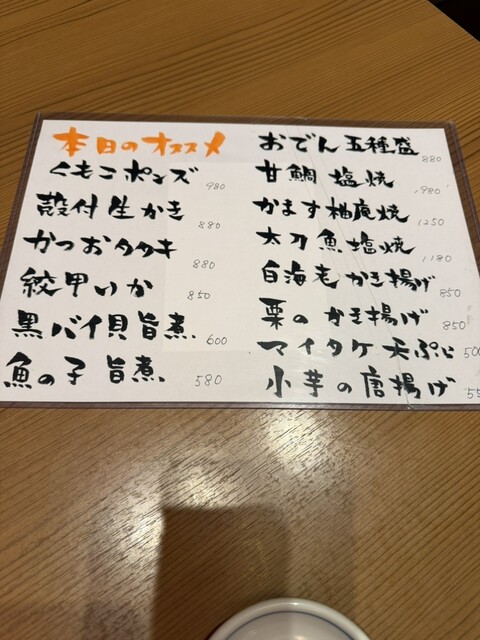 本日のオススメ
くもこポンズ 980
殻付生かき 880
かつおタタキ 880
紋甲いか 850
黒バイ貝旨煮 600
魚の子 旨煮 580
おでん五種盛 880
甘鯛 塩焼 980
かます柚庵焼 1250
太刀魚塩焼 1180
白海老かき揚げ 850
栗のかき揚げ 850
マイタケ天ぷら 500
小芋の唐揚げ